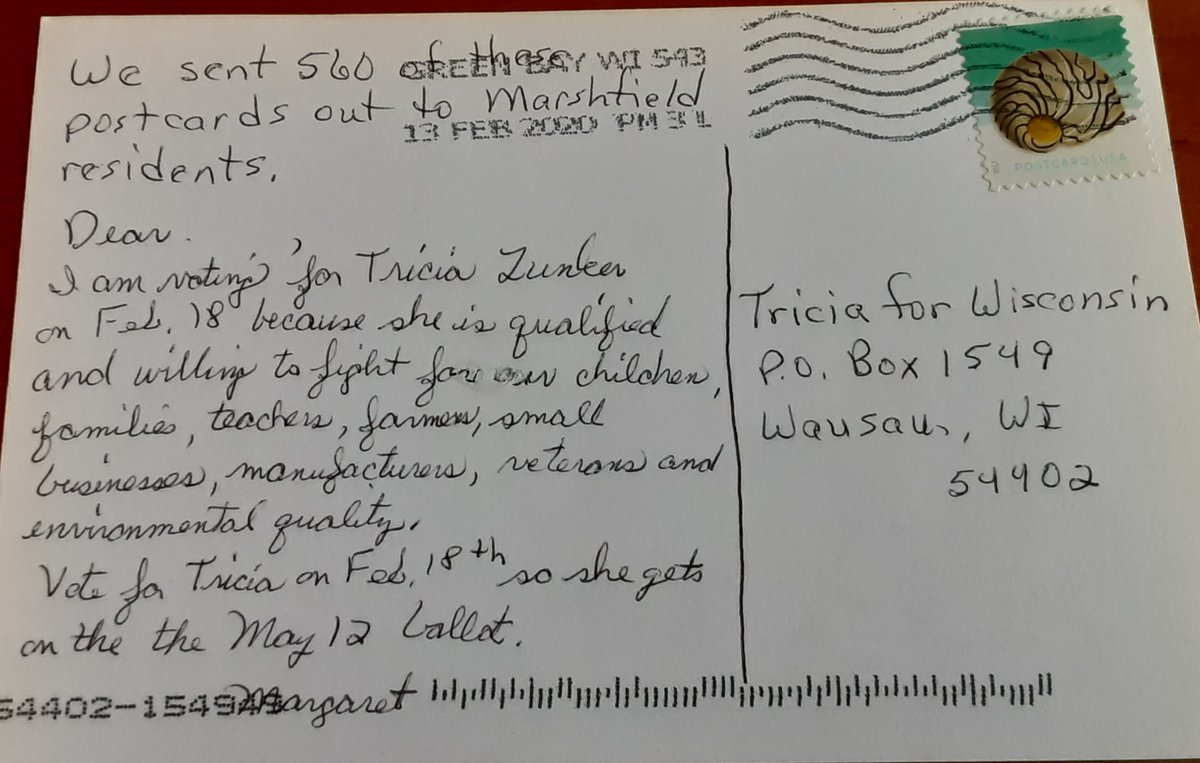 We sent 560 of these
postcards out to Marshfield
residents.
GREEN BAY WI 543
13 FEB 2020 PM 3 L
POSTCARD USA
Dear.
I am voting for Tricia Zunker
on Feb. 18 because she is qualified
and willing to fight for our children,
families, teachers, farmers, small
businesses, manufacturers, veterans and
environmental quality.
Vote for Tricia on Feb. 18th so she gets
on the the May 12 ballot.
Margaret
Tricia for Wisconsin
P.O. Box 1549
Wausau, WI
54402
54402-154949